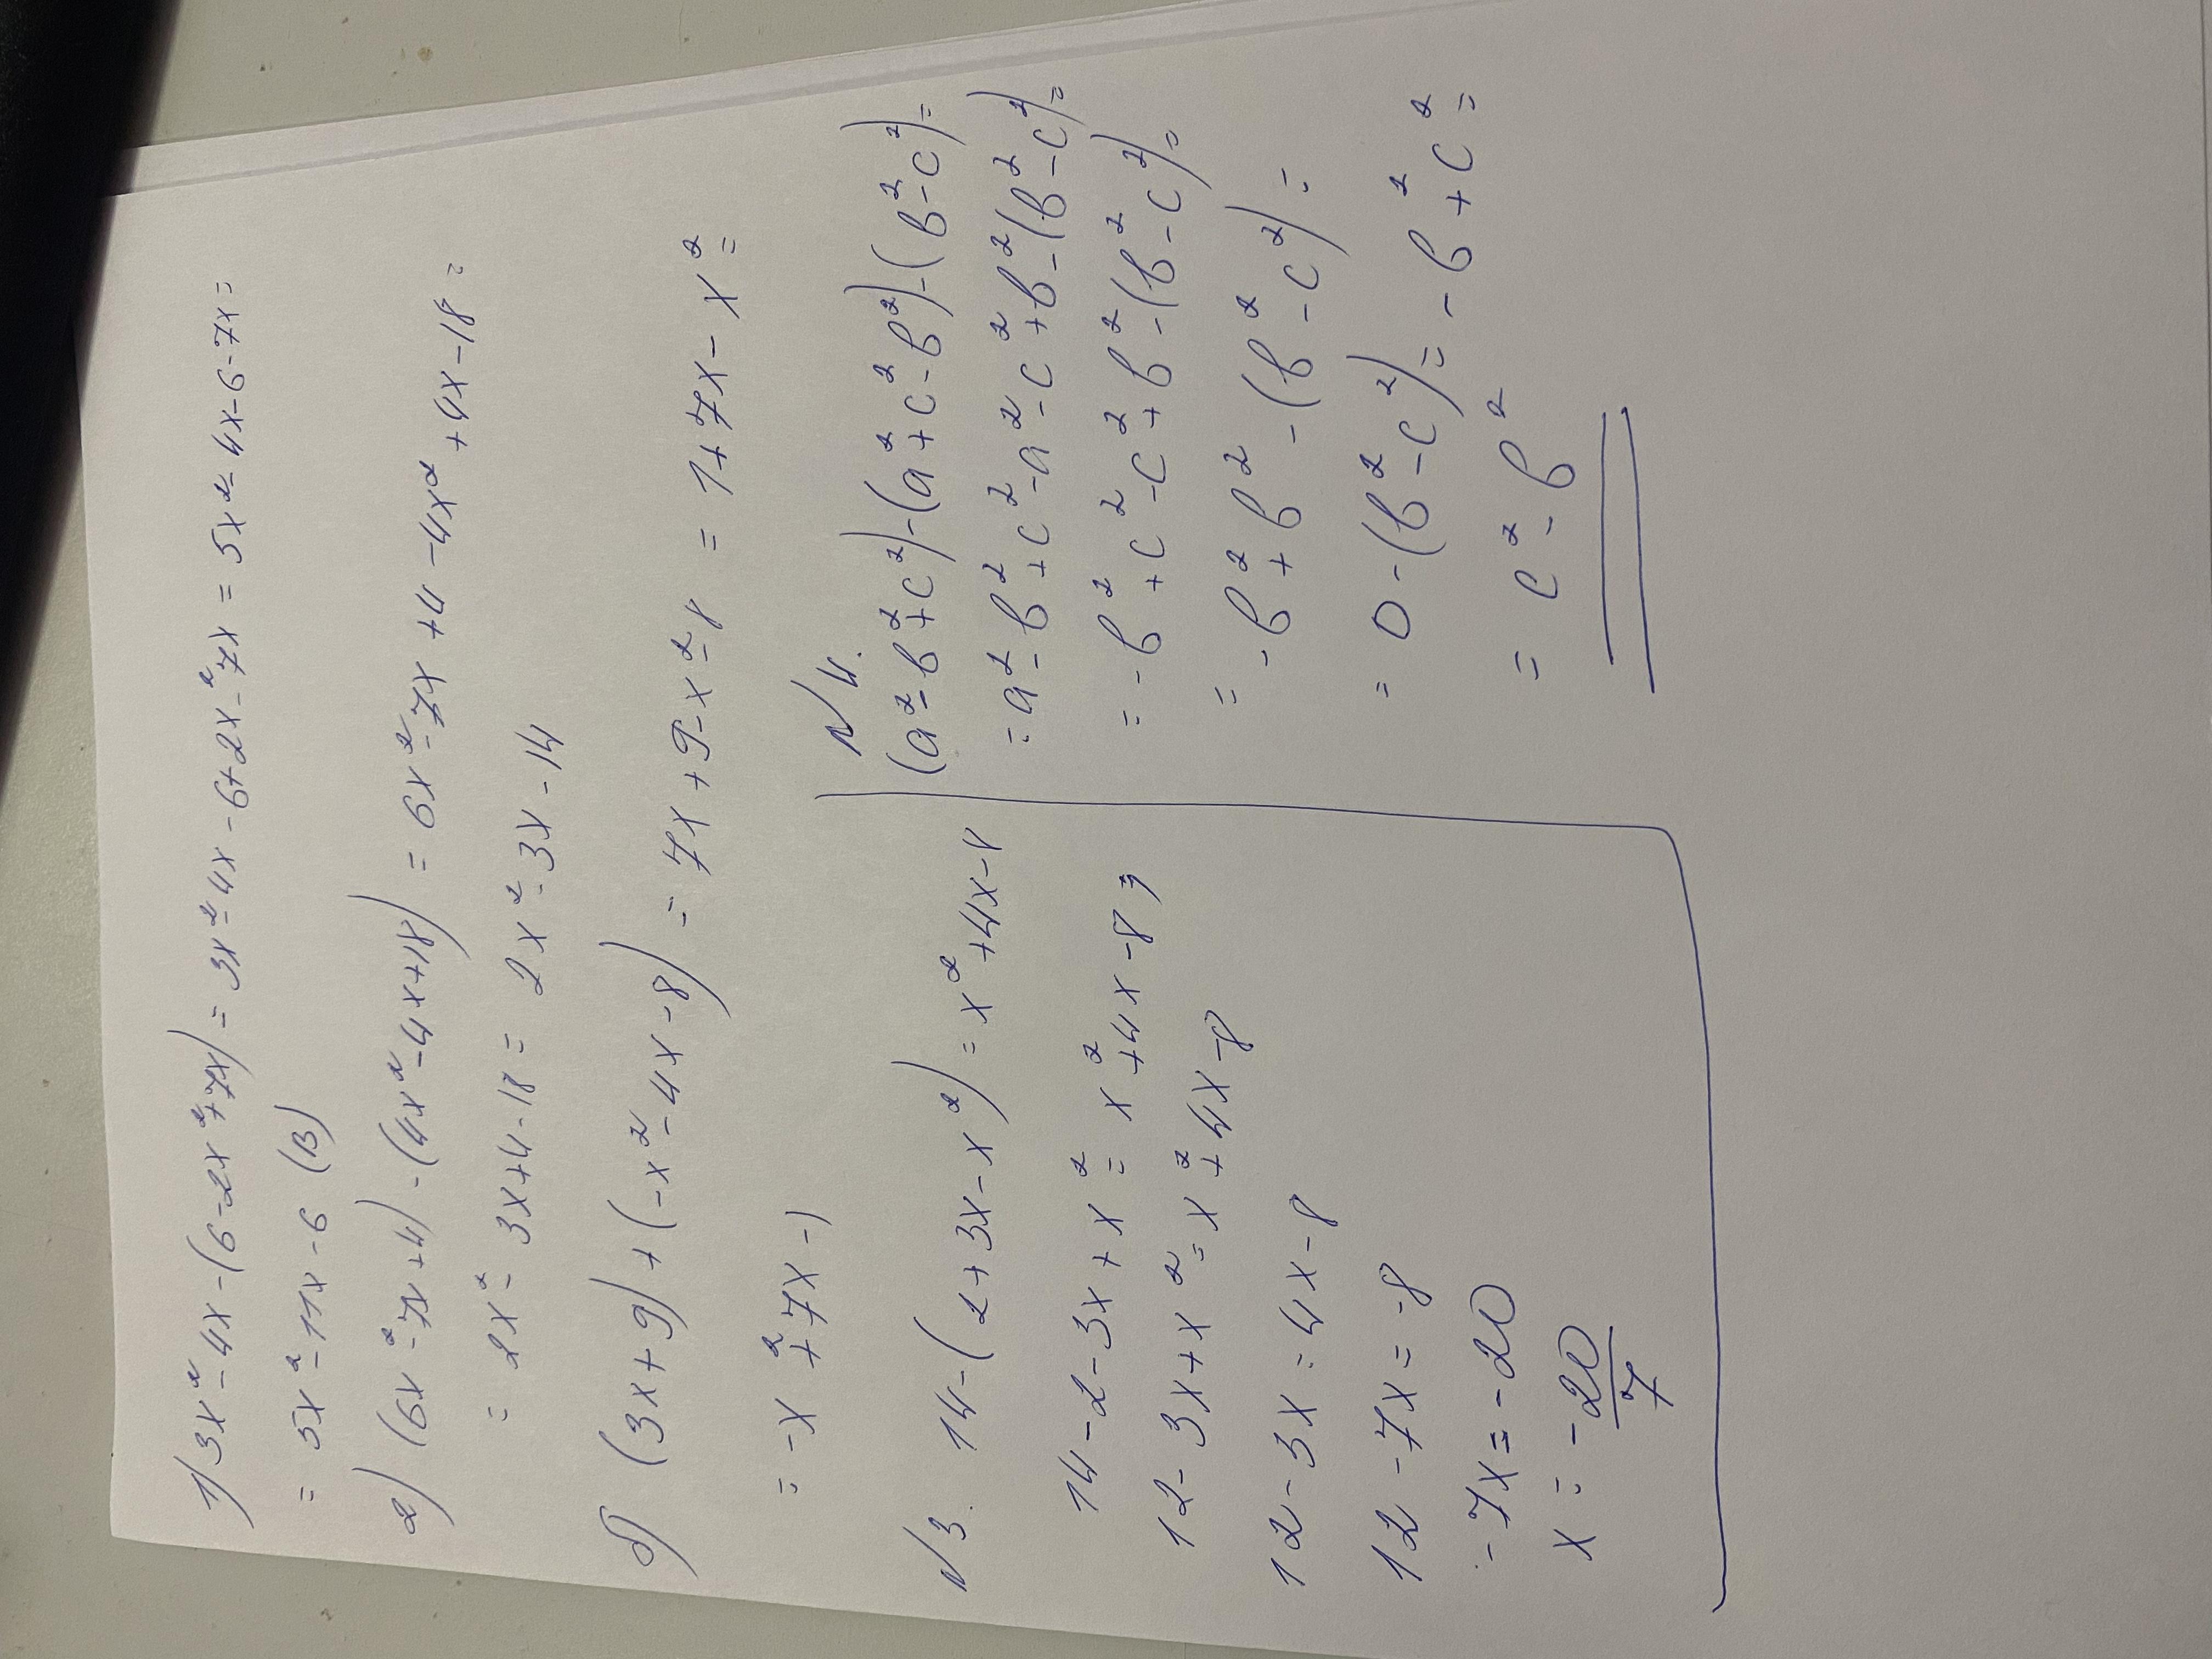 1) 3x² - 4x - (6 - 2x² + 7x) = 3x² - 4x - 6 + 2x - ² 7x = 5x² - 4x - 6 - 7x =
= 5x² - 11x - 6 (B)
a) (6x² - 7x + 4) - (4x² - 4x + 18) = 6x² - 7x + 4 - 4x² + 4x - 18 =
= 2x² - 3x + 4 - 18 = 2x² - 3x - 14
б) (3x + 9) + (-x² - 4x - 8) = 7x + 9 - x² - 8 = 1 + 7x - x² =
= -x² + 7x - 1
N3. 14 - (2 + 3x - x²) = x² + 4x - 8
14 - 2 - 3x + x² = x² + 4x - 8;
12 - 3x + x² = x² + 4x - 8
12 - 3x = 4x - 8
12 - 7x = -8
-7x = -20
x = -20/7
N4.
(a² - b² + c²) - (a² + c² - b²) - (b² - c²) =
= a² - b² + c² - a² - c² + b² - (b² - c²) =
= -b² + c² - c² + b² - (b² - c²) =
= -b² + b² - (b² - c²) =
= 0 - (b² - c²) = -b² + c² =
= c² - b²